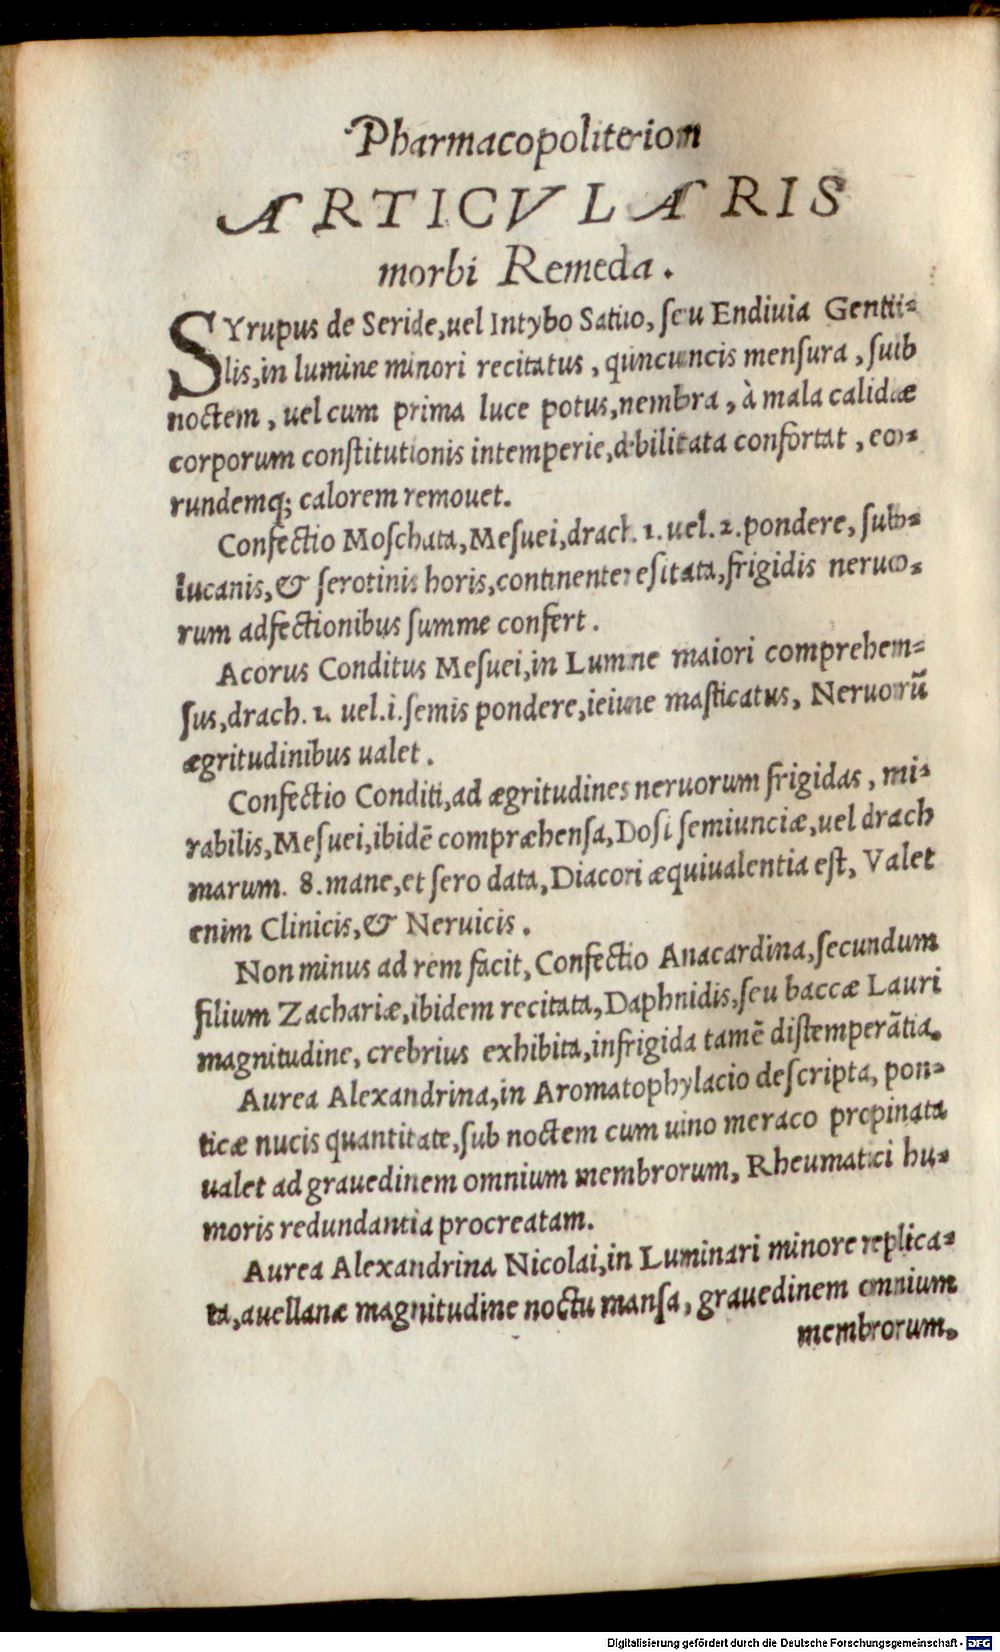 Pharmacopoliterion
ARTICVLARIS
morbi Remeda.
SYrupus de Seride, uel Intybo Satiuo, seu Endiuia Genti-
lis, in lumine minori recitatus, quncuncis mensura, sub
noctem, uel cum prima luce potus, membra, à mala calidæ
corporum constitutionis intemperie, debilitata confortat, eo-
rundemq; calorem remouet.
Confectio Moschata, Mesuei, drach. 1. uel. 2. pondere, sub-
lucanis, & serotinis horis, continenter esitata, frigidis neruo-
rum adfectionibus summe confert.
Acorus Conditus Mesuei, in Lumine maiori comprehen-
sus, drach. 1. uel. i. semis pondere, ieiune masticatus, Neruorū
ægritudinibus ualet.
Confectio Conditi, ad ægritudines neruorum frigidas, mi-
rabilis, Mesuei, ibidē compræhensa, Dosi semiunciæ, uel drach
marum. 8. mane, et sero data, Diacori æquiualentia est, Valet
enim Clinicis, & Neruicis.
Non minus ad rem facit, Confectio Anacardina, secundum
filium Zachariæ, ibidem recitata, Daphnidis, seu baccæ Lauri
magnitudine, crebrius exhibita, in frigida tamē distemperātia.
Aurea Alexandrina, in Aromatophylacio descripta, pon-
ticæ nucis quantitate, sub noctem cum uino meraco propinata
ualet ad grauedinem omnium membrorum, Rheumatici hu-
moris redundantia procreatam.
Aurea Alexandrina Nicolai, in Luminari minore replica-
ta, auellanæ magnitudine noctu mansa, grauedinem omnium
membrorum.
Digitalisierung gefördert durch die Deutsche Forschungsgemeinschaft - DFG